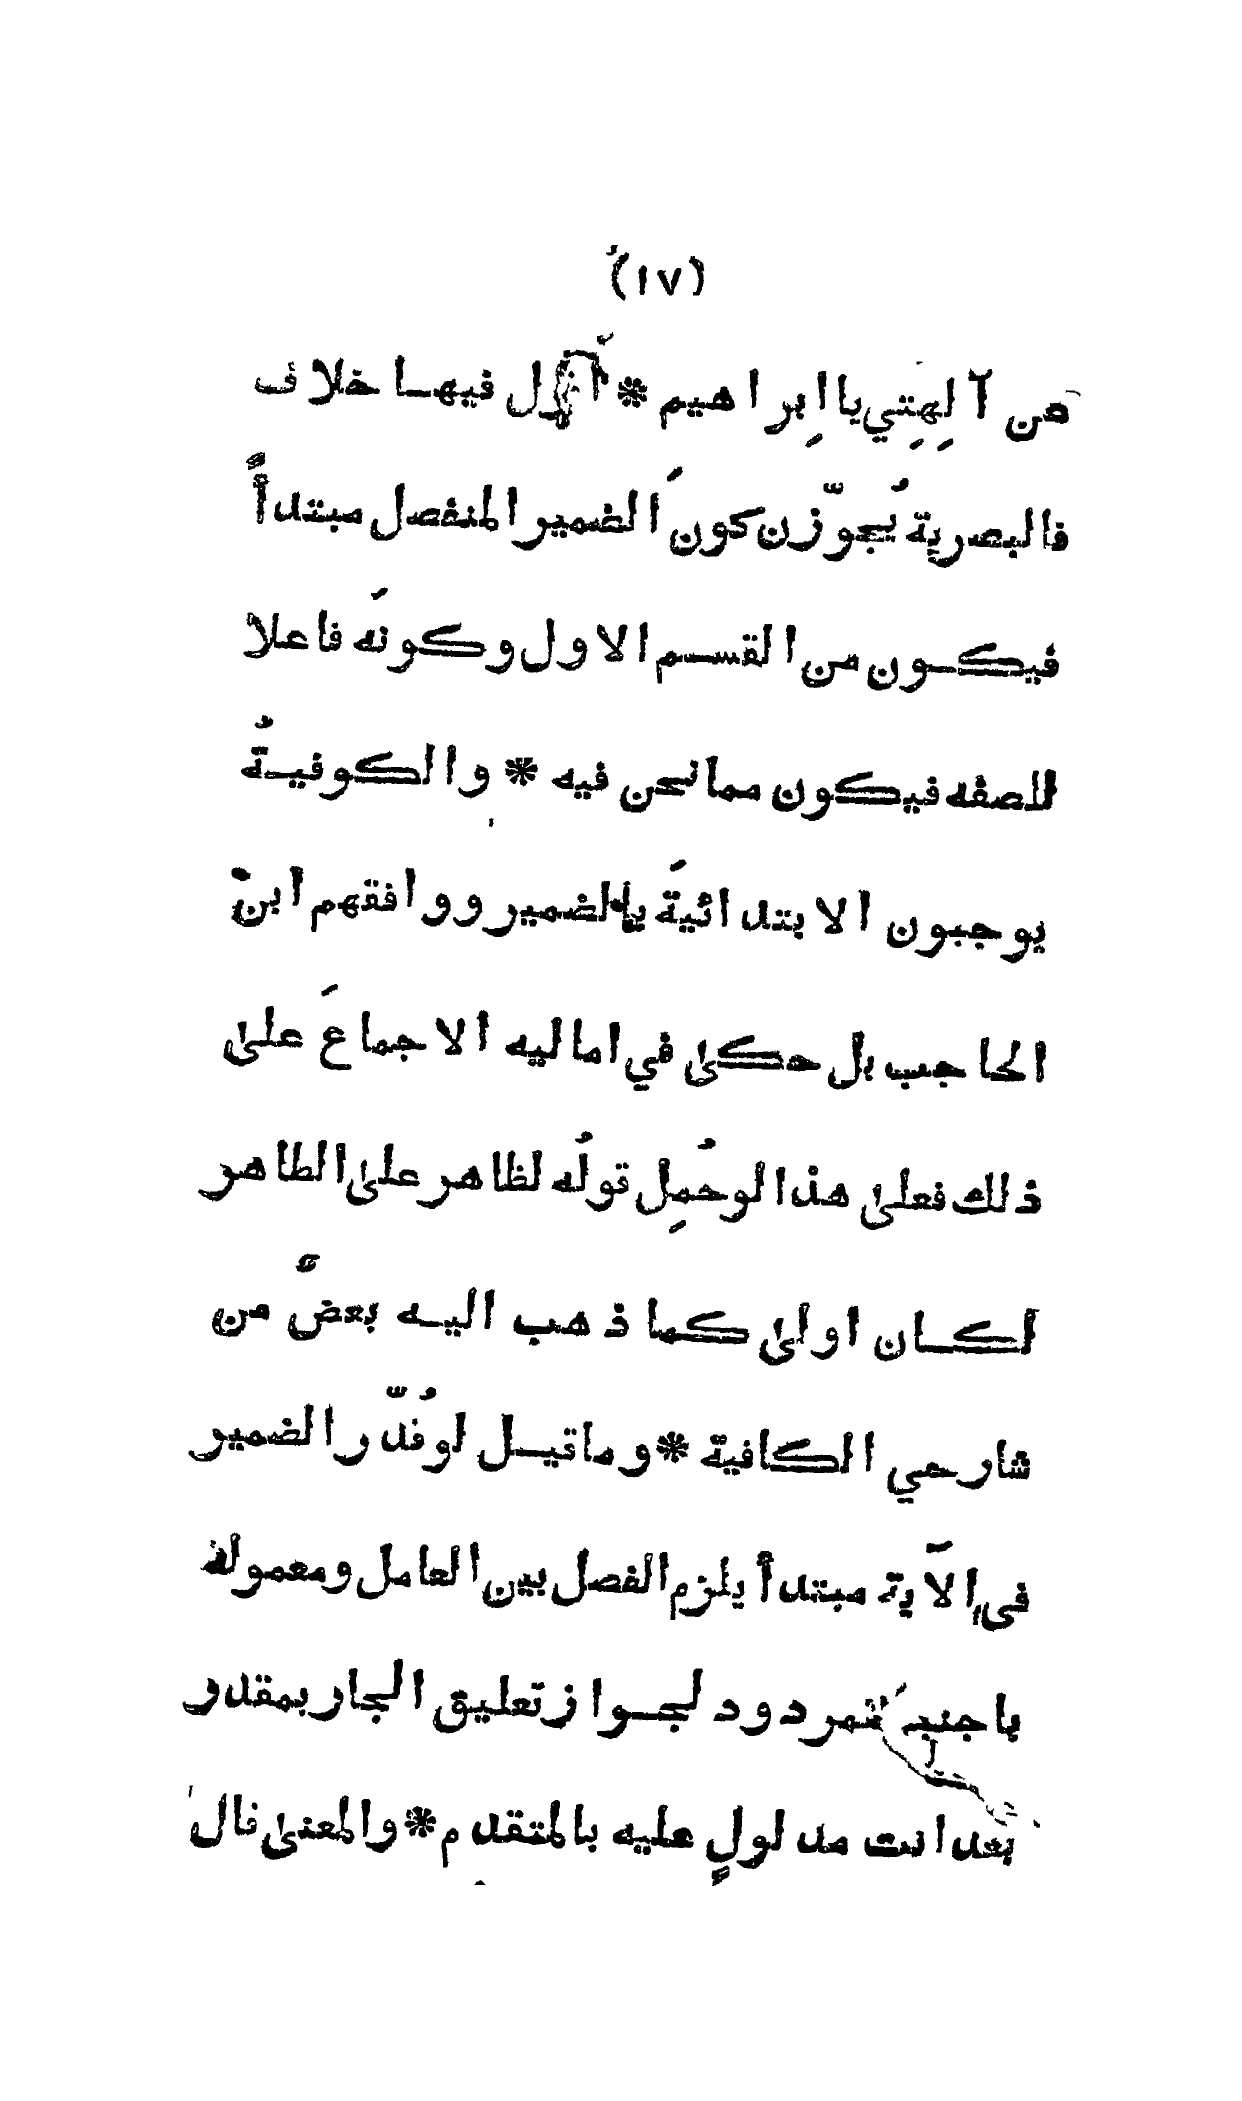 (١٧)
من آلِهِتي يا اِبراهيم * أقول فيهـا خلاف
فالبصرية يُجوّزن كونَ الضمير المنفصل مبتدأً
فيكـون من القسـم الاول وكونَه فاعلا
للصفه فيكون مما نحن فيه * والكوفيـةُ
يوجبون الابتدائيةَ بالضمير ووافقهم ابنُ
الحاجب بل حكىٰ في اماليه الاجماعَ علىٰ
ذلك فعلىٰ هذا لو حُمِل قولُه لظاهر علىٰ الظاهر
لكـان اولىٰ كما ذهب اليـه بعضٌ من
شارحي الكافية * وما قيـل لو قُدّر الضمير
في الآية مبتدأ يلزم الفصل بين العامل ومعموله
باجنبه فمردود لجـواز تعليق الجار بمقدر
بعد انت مدلولٍ عليه بالمتقدم * والمعنىٰ قال